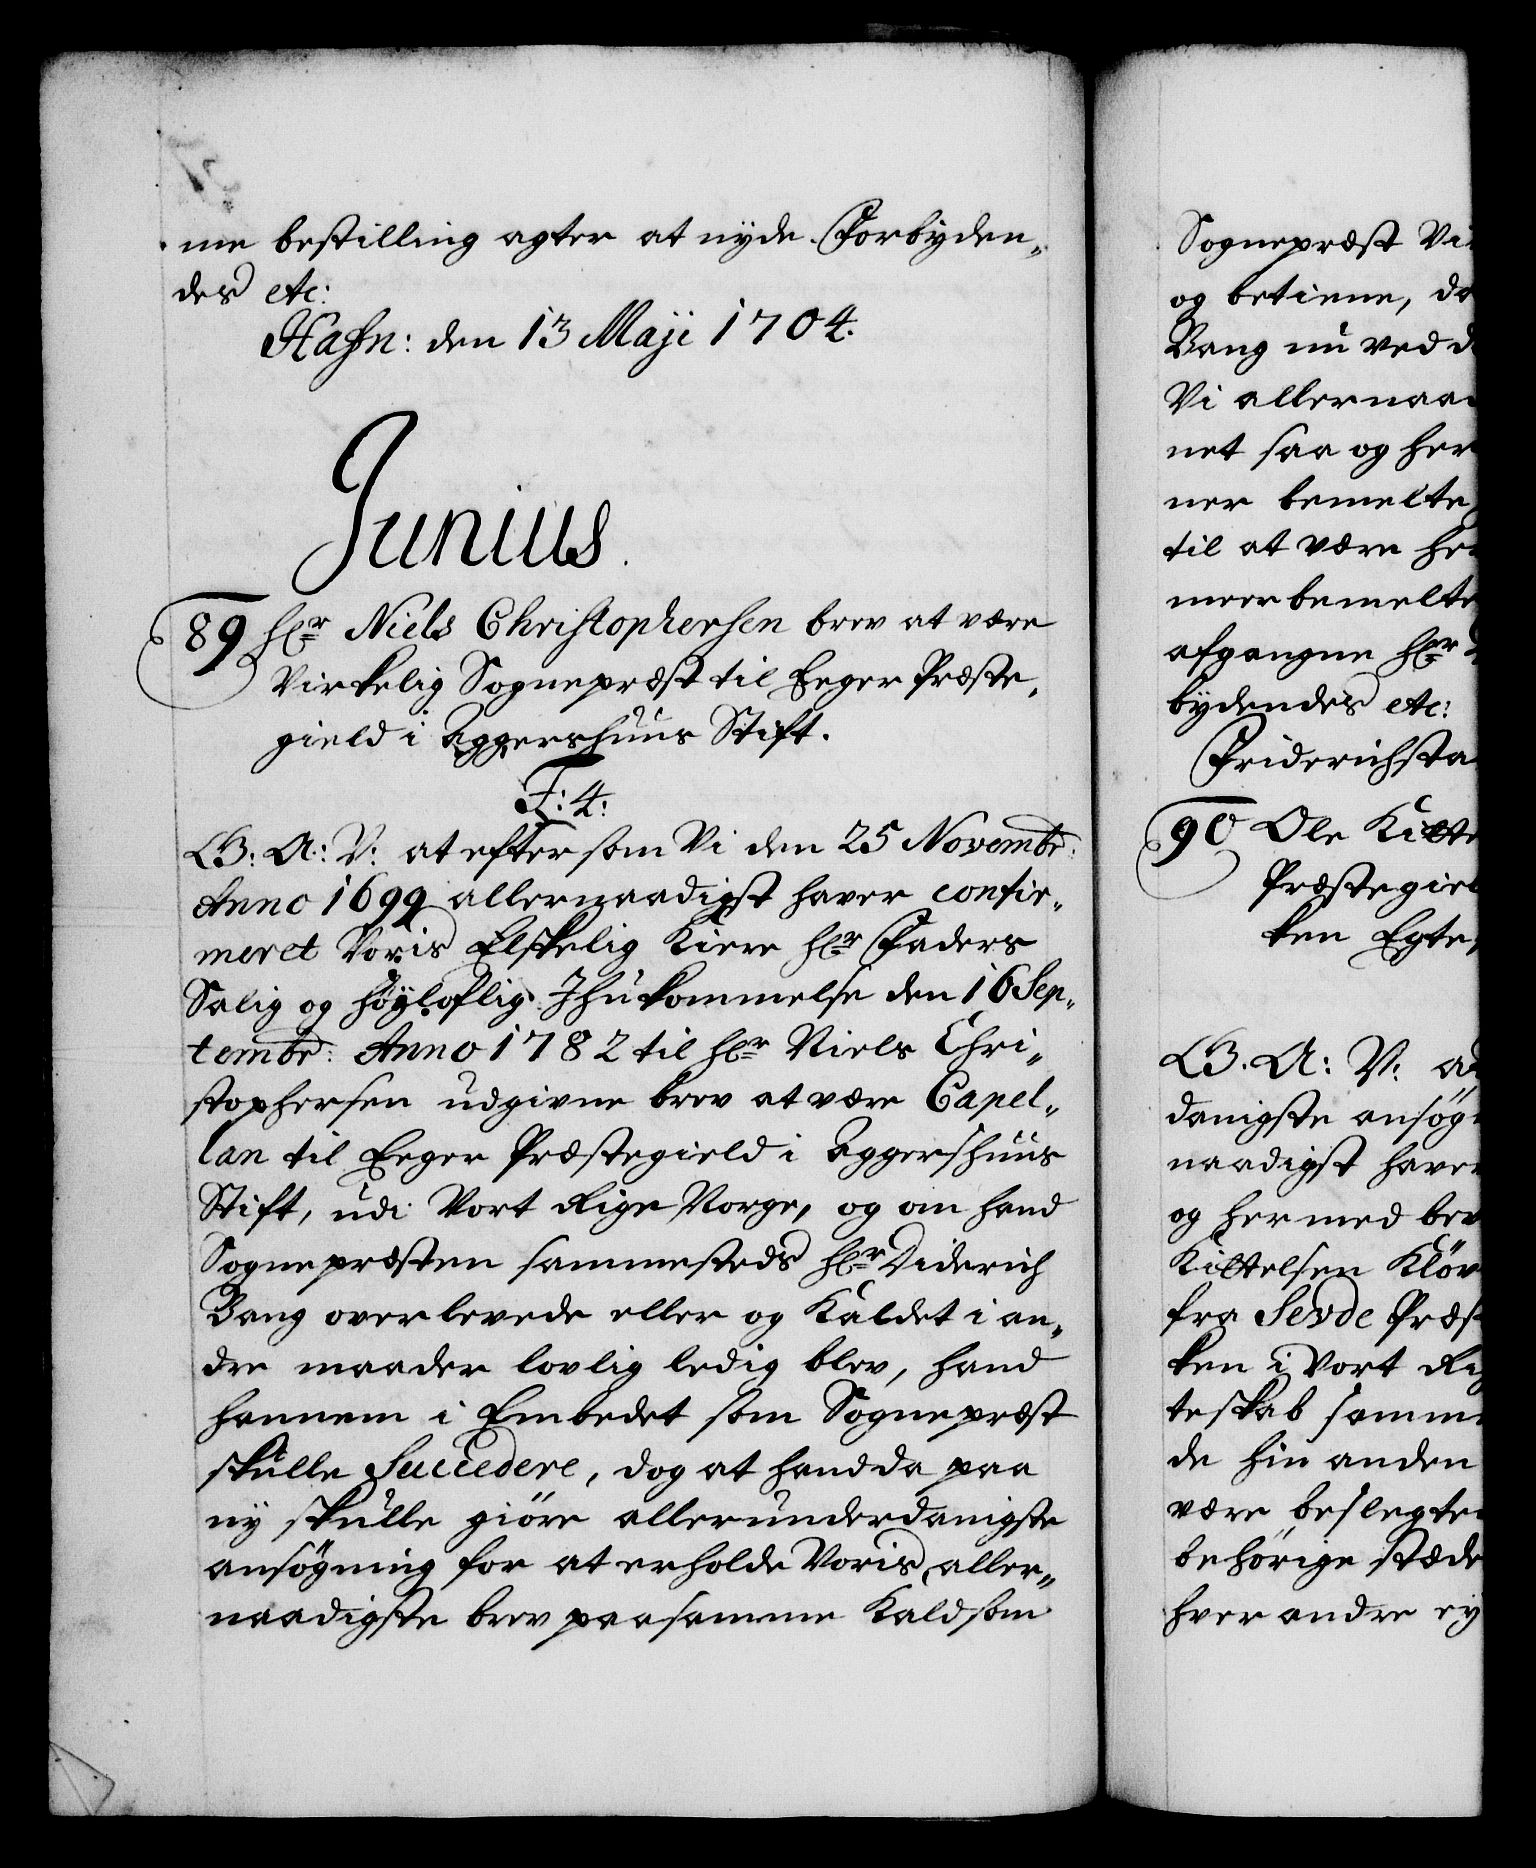 me bestilling agter at nyde. Forbyden„
des etc:
Hafn: den 13 Maji 1704.
Junius.
89 Hr Niels Christophersen brev at være
Virkelig Sognepræst til Eeger Præste„
gield i Aggershuus Stift.
F: 4:
G: A: V: at eftersom Vi den 25 Novembr:
Anno 1699 allernaadigst haver confir„
meret Voris Elskelig Kiere Hr Faders
Salig og høyloflig Ihukommelse den 16 Sep„
tembr: Anno 1782 til Hr Niels Chri„
stophersen udgivne brev at være Capel„
lan til Eeger Præstegield i Aggershuus
Stift, udi Vort Rige Norge, og om hand
Sognepræsten sammesteds Hr Diderich
Bang overlevede eller og Kaldet i an„
dre maader lovlig ledig blev, hand
hannem i Embedet som Sognepræst
skulle Succedere, dog at hand da paa
ny skulle giöre allerunderdanigste
ansögning for at erholde Voris aller„
naadigste brev paa samme Kald som
Sognepræst
og betiene,
Bang nu ved
Vi
net saa og her
ner bemelte
til at være
meerbemelte
afgangne Hr
bydendes etc:
90 Ole
ken Egte„
G. A: V:
danigste
naadigst haver
og hermed
Kittelsen
fra Sevde
ken i Vort
teskab
de hin anden
være
behörige stæde
hver andre ey